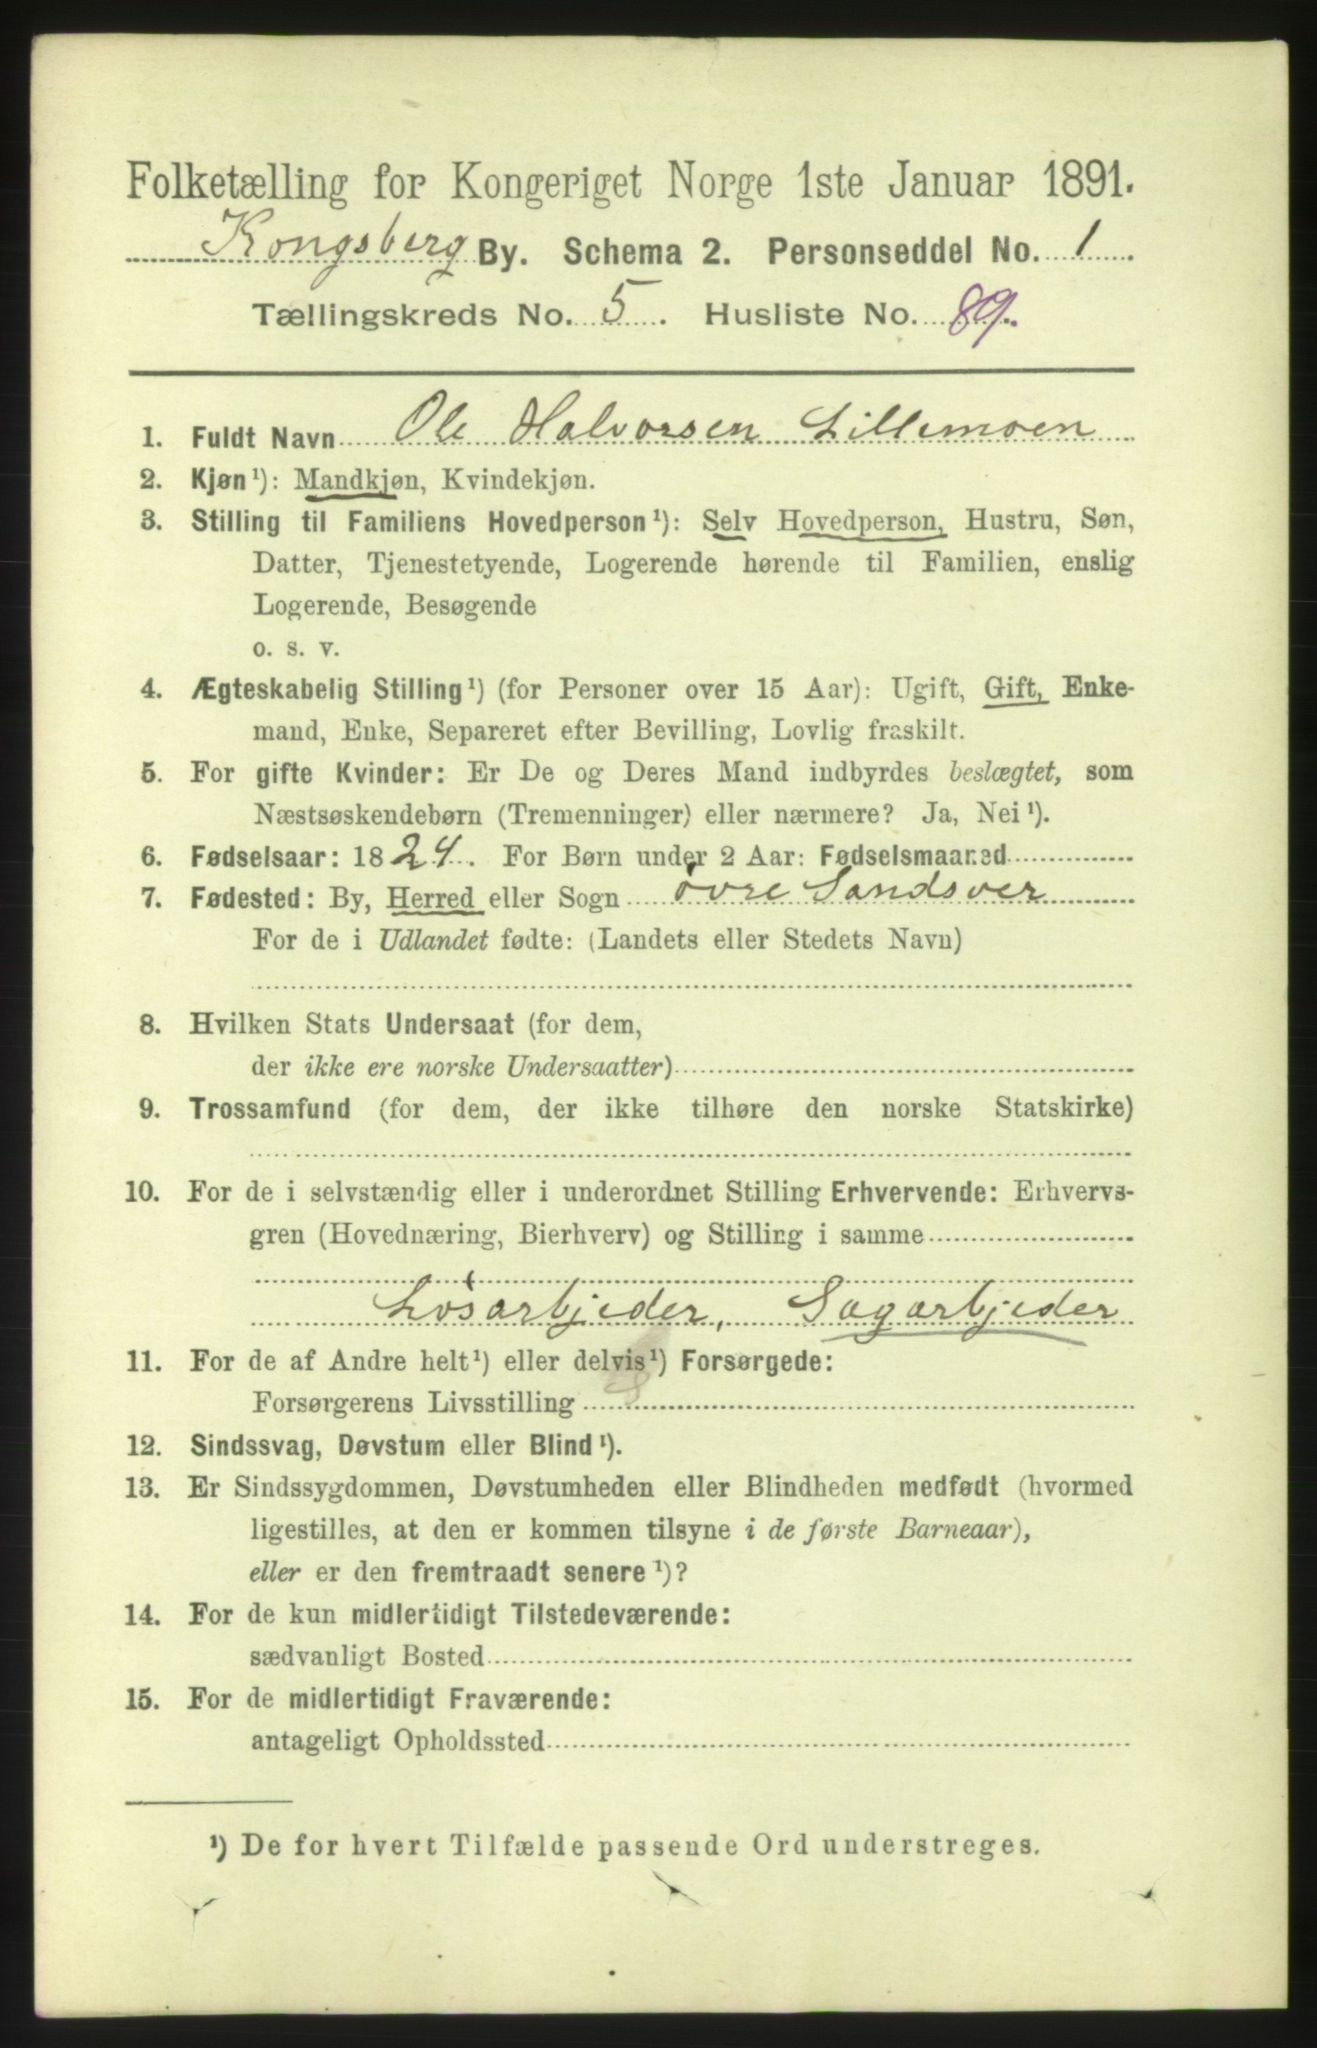 Folketælling for Kongeriget Norge 1ste Januar 1891.
Kongsberg By. Schema 2. Personseddel No. 1
Tællingskreds No. 5. Husliste No. 89.
1. Fuldt Navn Ole Halvorsen Lillemoen
2. Kjøn¹): Mandkjøn, Kvindekjøn.
3. Stilling til Familiens Hovedperson¹): Selv Hovedperson, Hustru, Søn,
Datter, Tjenestetyende, Logerende hørende til Familien, enslig
Logerende, Besøgende
o. s. v.
4. Ægteskabelig Stilling¹) (for Personer over 15 Aar): Ugift, Gift, Enke-
mand, Enke, Separeret efter Bevilling, Lovlig fraskilt.
5. For gifte Kvinder: Er De og Deres Mand indbyrdes beslægtet, som
Næstsøskendebørn (Tremenninger) eller nærmere? Ja, Nei¹).
6. Fødselsaar: 1824. For Børn under 2 Aar: Fødselsmaaned
7. Fødested: By, Herred eller Sogn øvre Sandsver
For de i Udlandet fødte: (Landets eller Stedets Navn)
8. Hvilken Stats Undersaat (for dem,
der ikke ere norske Undersaatter)
9. Trossamfund (for dem, der ikke tilhøre den norske Statskirke)
10. For de i selvstændig eller i underordnet Stilling Erhvervende: Erhvervs-
gren (Hovednæring, Bierhverv) og Stilling i samme
Løsarbjeder, Sagarbjeder
11. For de af Andre helt¹) eller delvis¹) Forsørgede:
Forsørgerens Livsstilling
12. Sindssvag, Døvstum eller Blind¹).
13. Er Sindssygdommen, Døvstumheden eller Blindheden medfødt (hvormed
ligestilles, at den er kommen tilsyne i de første Barneaar),
eller er den fremtraadt senere¹)?
14. For de kun midlertidigt Tilstedeværende:
sædvanligt Bosted
15. For de midlertidigt Fraværende:
antageligt Opholdssted
¹) De for hvert Tilfælde passende Ord understreges.